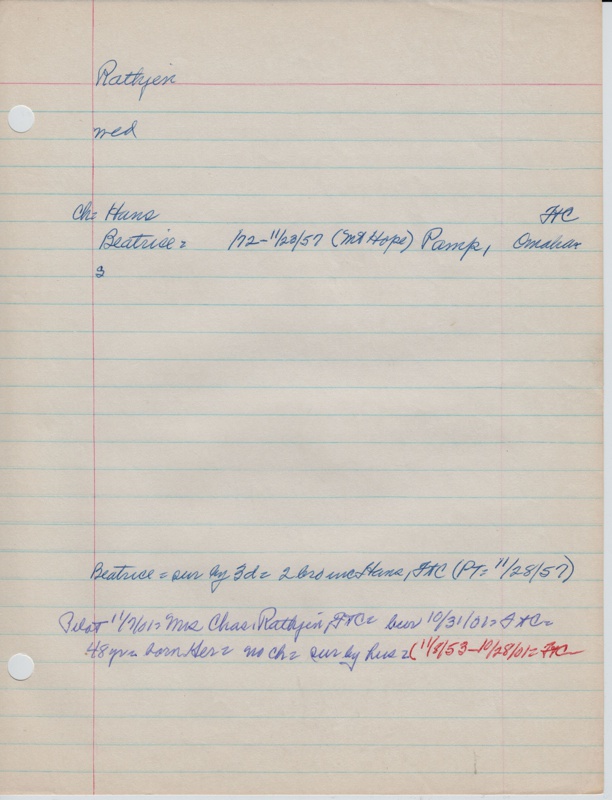 Rathjen
wed
ch= Hans FtC
Beatrice= /72-11/23/57 (Mt Hope) Pamp, Omaha=
3
Beatrice = sur by 3d = 2 bro inc Hans, FtC (PT= 11/28/57)
Pilot 11/7/01= Mrs Chas. Rathjen, FtC= bur 10/31/01= FtC=
48 yr= born Ger= no ch= sur by hus = (11/8/53-10/28/01= FtC